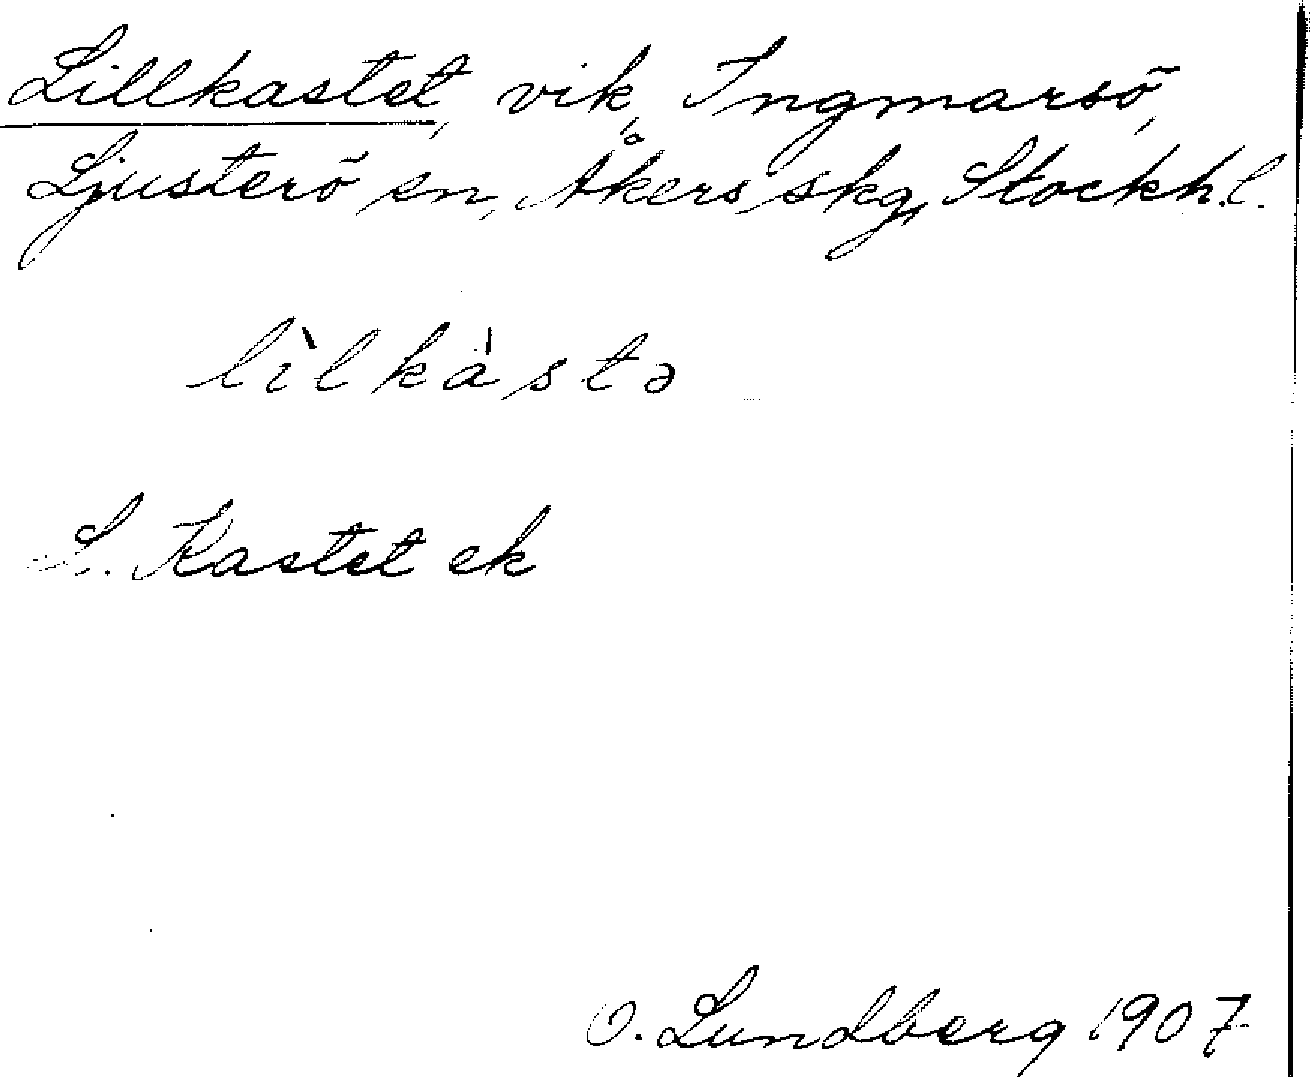 Lillkastet, vik, Ingmarsö,
Ljusterö sn, Åkers skg, Stockh.l.
lìlkàstə
L. Kastet ek
O. Lundberg 1907